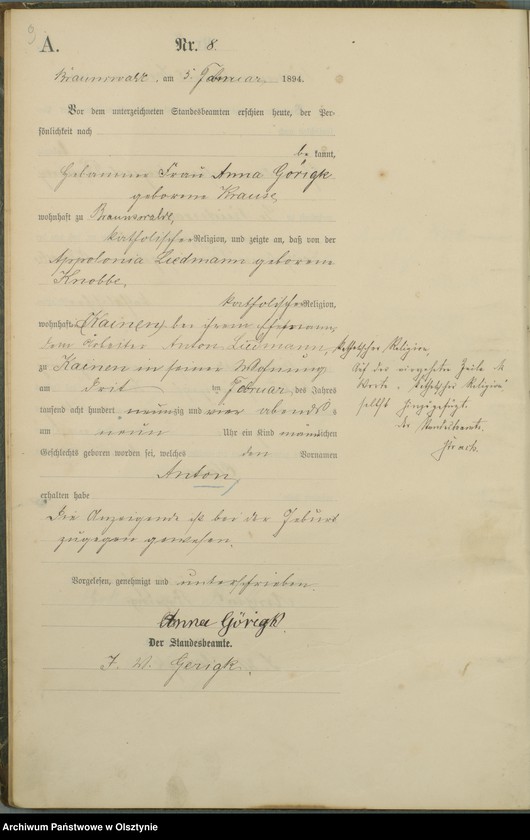 9
A.
Nr. 8.
Braunswalde, am 5. Februar 1894.
Vor dem unterzeichneten Standesbeamten erschien heute, der Per-
sönlichkeit nach
be kannt,
Hebamme Frau Anna Görigk
geborene Krause,
wohnhaft zu Braunswalde,
katholischer Religion, und zeigte an, daß von der
Appolonia Liedmann geborene
Knobbe,
katholischer Religion,
wohnhaft (Kainen) bei ihrem Ehemann,
dem Arbeiter Anton Liedmann, katholischer Religion,
zu Kainen in seiner Wohnung
am drit im Februar, des Jahres
tausend acht hundert neunzig und vier abends
um neun Uhr ein Kind männlichen
Geschlechts geboren worden sei, welches den Vornamen
Anton,
erhalten habe
Die Anzeigende ist bei der Geburt
zugegen gewesen.
Vorgelesen, genehmigt und unterschrieben.
Anna Görigk.
Der Standesbeamte.
J. W. Gerigk.
Auf der vorgesetzten Zeile die
Worte „katholischer Religion"
selbst hinzugefügt.
Der Standesbeamte.
Archiwum Państwowe w Olsztynie